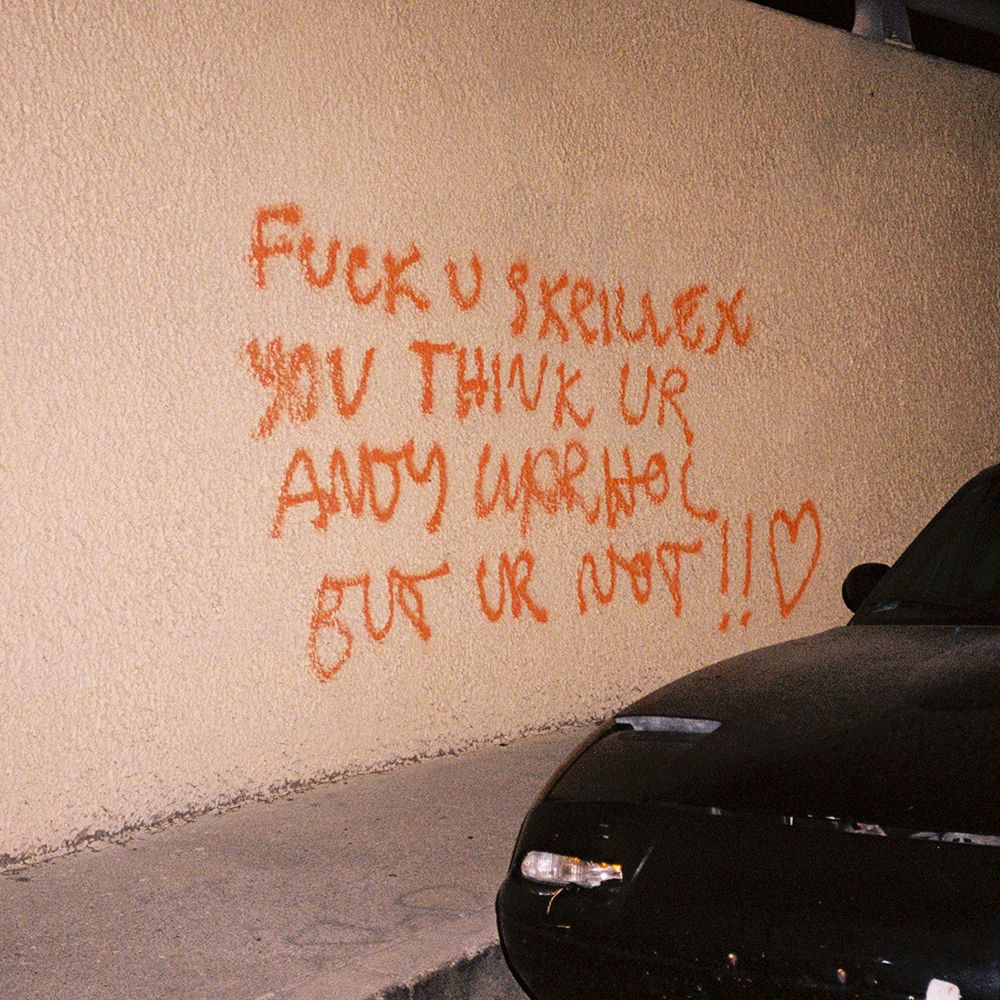 FUCK U SKRILLEX
YOU THINK UR
ANDY WARHOL
BUT UR NOT!! ♡